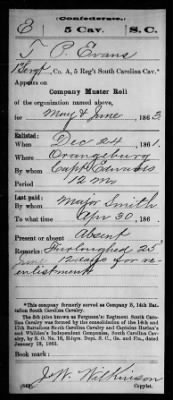 Confederate.
E 5 Cav. S.C.
T. P. Evans
1 Sergt, Co. A, 5 Reg't South Carolina Cav.*
Appears on
Company Muster Roll
of the organization named above,
for May & June, 1863
Enlisted:
When Dec 24, 1861.
Where Orangeburg
By whom Capt Edwards
Period 12 Mo
Last paid:
By whom Major Smith
To what time Apr 30, 186
Present or absent Absent
Remarks: Furloughed 25
June 12 days for re-
enlistment
*This company formerly served as Company B, 14th Bat-
talion South Carolina Cavalry.
The 5th (also known as Ferguson's) Regiment South Caro-
lina Cavalry was formed by the consolidation of the 14th and
17th Battalions South Carolina Cavalry and Captains Harlan's
and Whilden's Independent Companies, South Carolina Caval-
ry, by S. O. No. 18, Hdqrs. Dept. S. C., Ga. and Fla., dated
January 18, 1863.
Book mark:
J. W. Wilkinson
(642) Copyist.